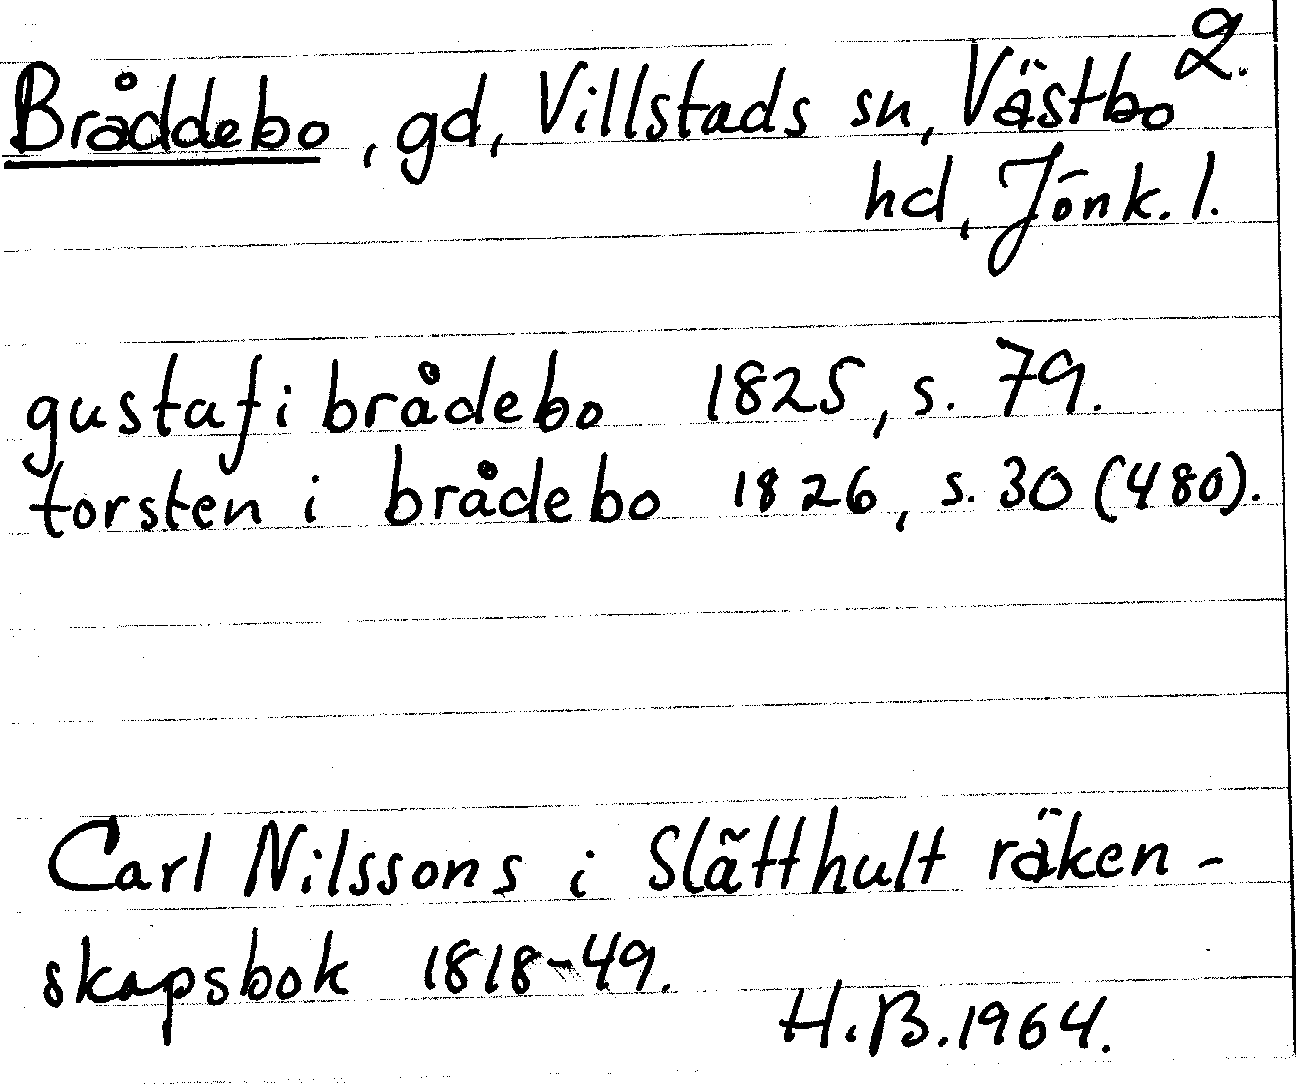 2.
Bråddebo, gd, Villstads sn, Västbo
hd, Jönk. l.
gustaf i brådebo 1825, s. 79.
torsten i brådebo 1826, s. 30 (480).
Carl Nilssons i Slätthult räken-
skapsbok 1818-49.
H.B. 1964.